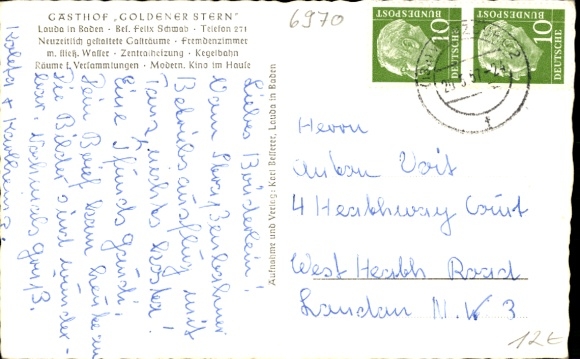 GASTHOF „GOLDENER STERN"
Lauda in Baden · Bes. Felix Schwab · Telefon 271
Neuzeitlich gehaltete Gasträume · Fremdenzimmer
m. fließ. Wasser · Zentralheizung · Kegelbahn
Räume f. Versammlungen · Modern. Kino im Hause
6970
Liebes Brüderlein!
Vom
Betriebsausflug mit
Tanz, nichts kostet!
Eine Pfundsgaudi!
Dein Brief kam heute an
Die Bilder sind wunder-
bar. Nochmals Gruß.
Aufnahme und Verlag: Karl Besserer, Lauda in Baden
10
DEUTSCHE
BUNDESPOST
10
DEUTSCHE
BUNDESPOST
Herrn
Anton Voit
4 Heathway Court
West Heath Road
London N.W 3
12€